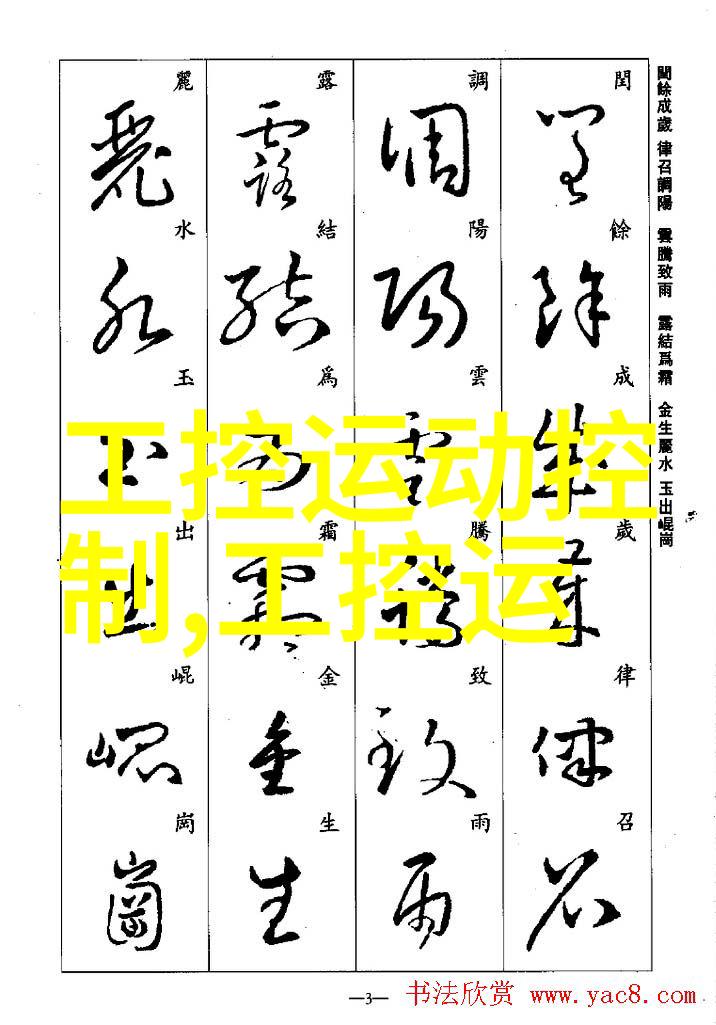 閏餘成歲 律召調陽 雲騰致雨 露結爲霜 金生麗水 玉出崐崗
閏餘成歲律召
調陽雲騰致雨
露結爲霜金生
麗水玉出崐崗
工控运动控
制,工控运
—3—
书法欣赏 www.yac8.com